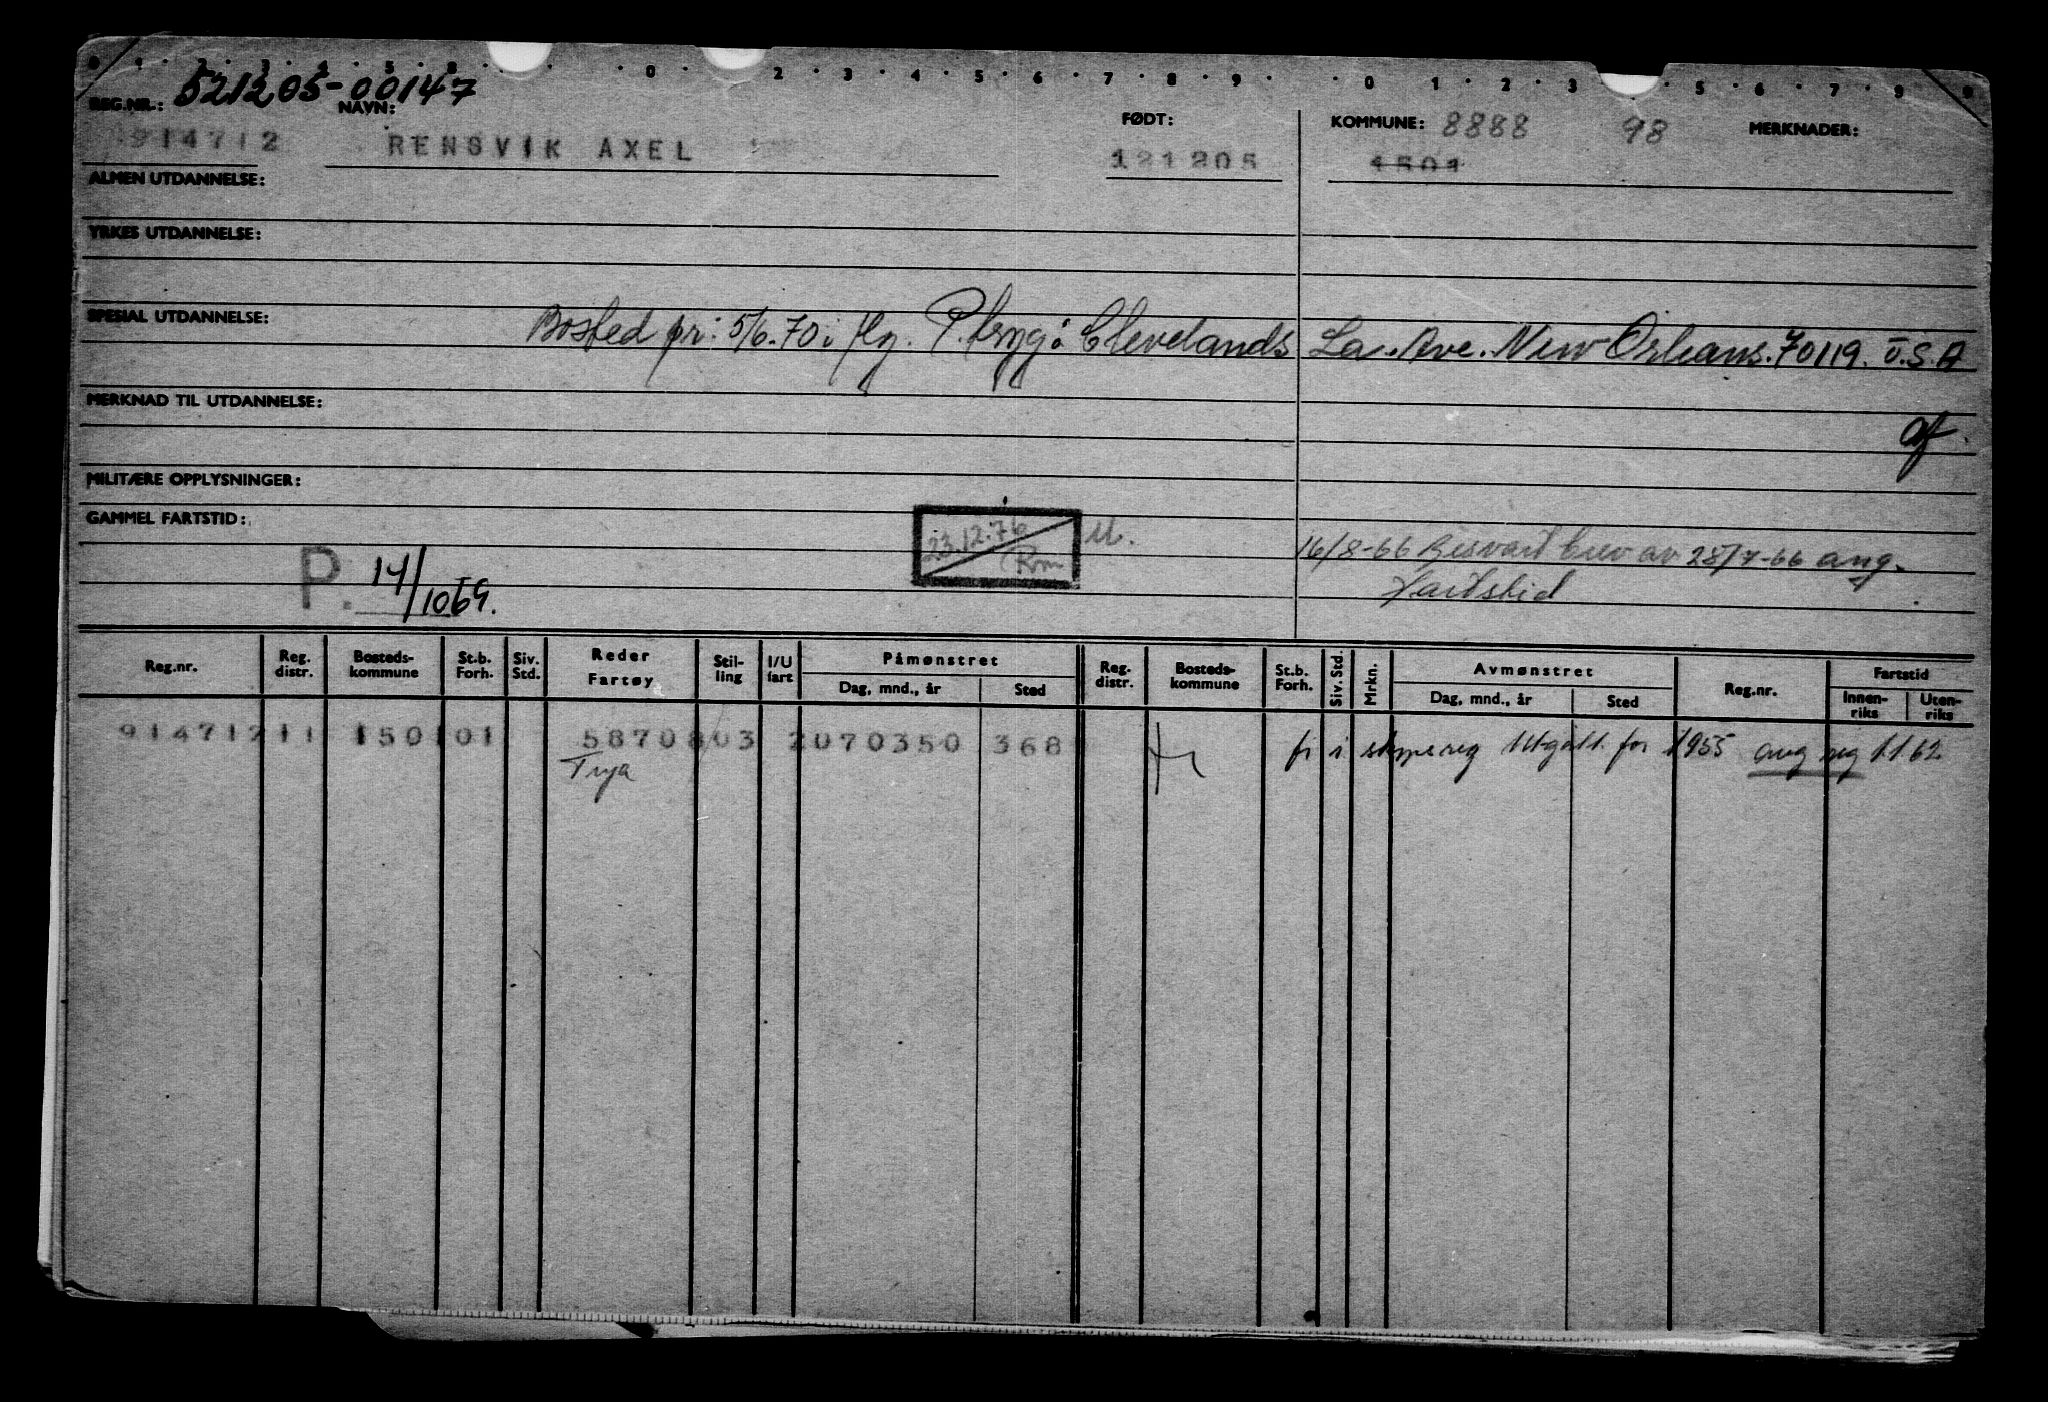 521205-00147
REG.NR.: NAVN: FØDT: KOMMUNE: 8888 98 MERKNADER:
914712 RENSVIK AXEL 121205 1501
ALMEN UTDANNELSE:
YRKES UTDANNELSE:
SPESIAL UTDANNELSE:
Bosted pr: 5/6-70 i flg. P.tryg: Clevelands La. Ave. New Orleans. 70119. U.S.A
MERKNAD TIL UTDANNELSE:
af.
MILITÆRE OPPLYSNINGER:
GAMMEL FARTSTID:
23.12.76 M.
Rm
16/8-66 Besvart brev av 28/7-66 ang.
Fartstid
P. 14/1069.
Reg.nr. Reg. distr. Bosteds-kommune St.b. Forh. Siv. Std. Reder Fartøy Stil-ling I/U fart Påmønstret Dag, mnd., år Sted Reg. distr. Bosteds-kommune St.b. Forh. Siv. Std. Mrkn. Avmønstret Dag, mnd., år Sted Reg.nr. Fartstid Innen-riks Uten-riks
914712 11 1501 01 58708 03 2 070350 368 fr i skipsreg Utgått for 1955 ang reg 1.1.62
Trya